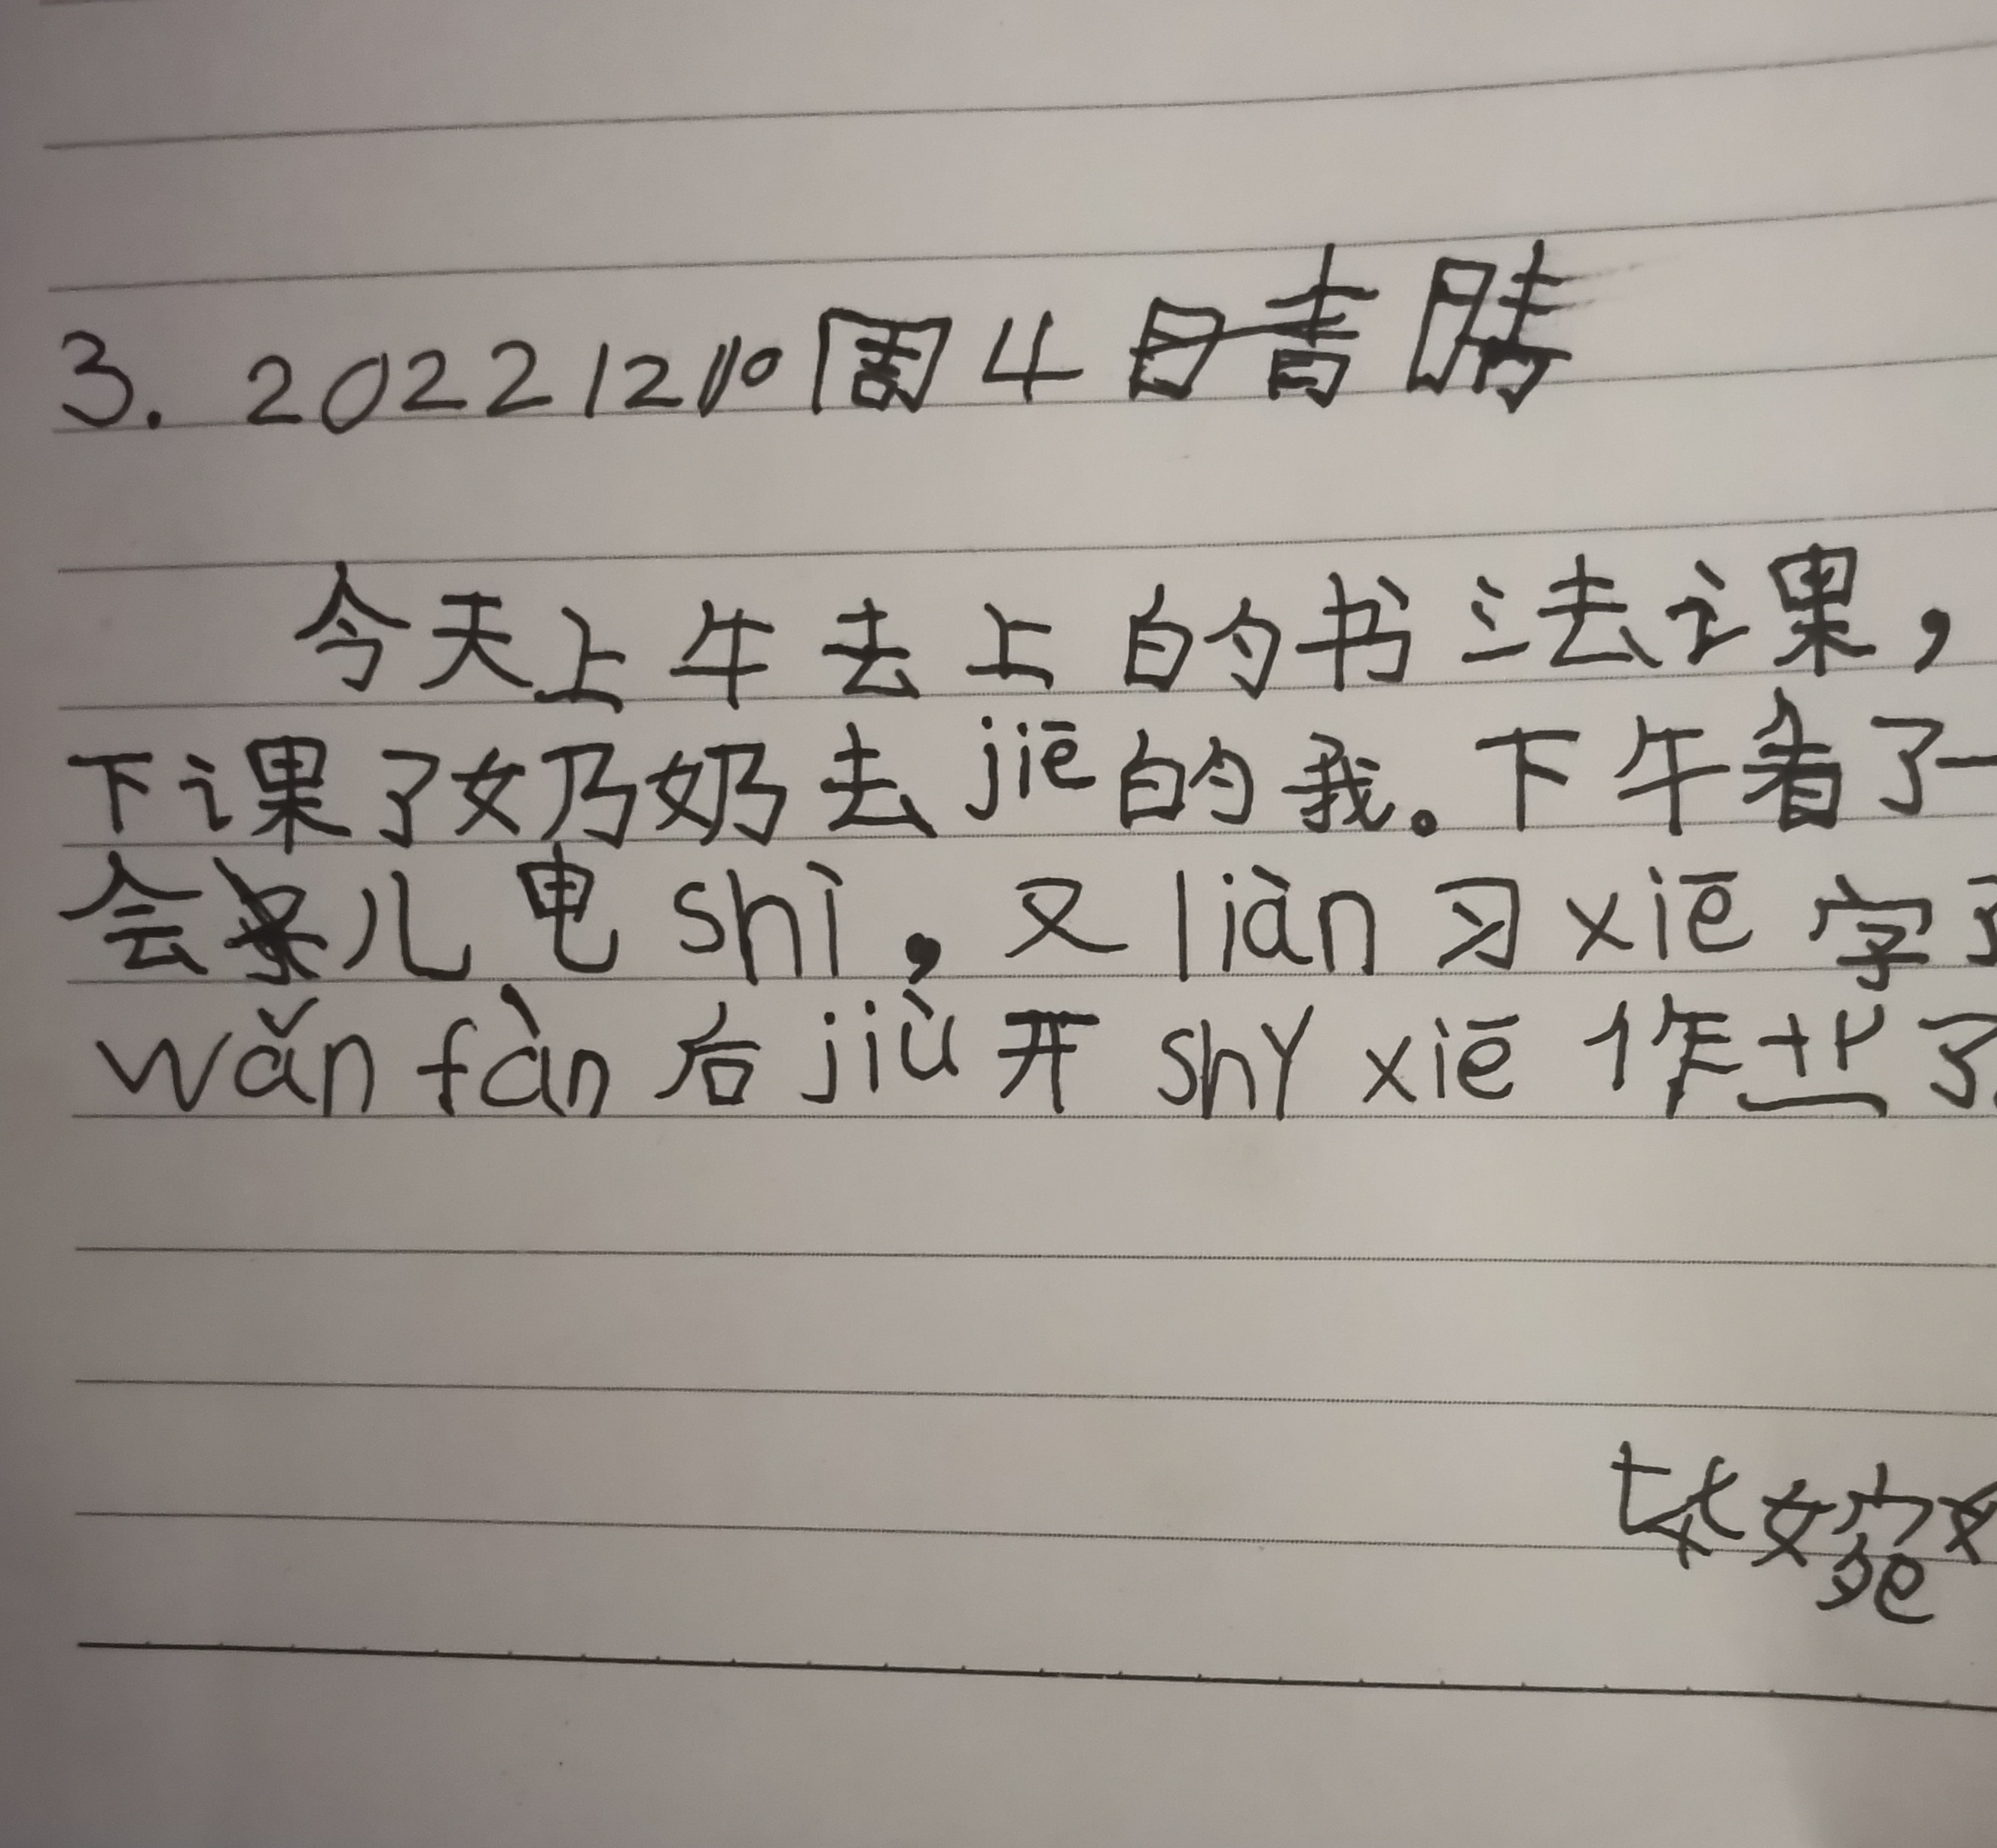 3. 20221210周4晴
今天上午去上的书法课，
下课了奶奶去jiē的我。下午看了一
会儿电shì，又liàn习xiē字了
wǎnfàn后jiù开shy xiē作业了